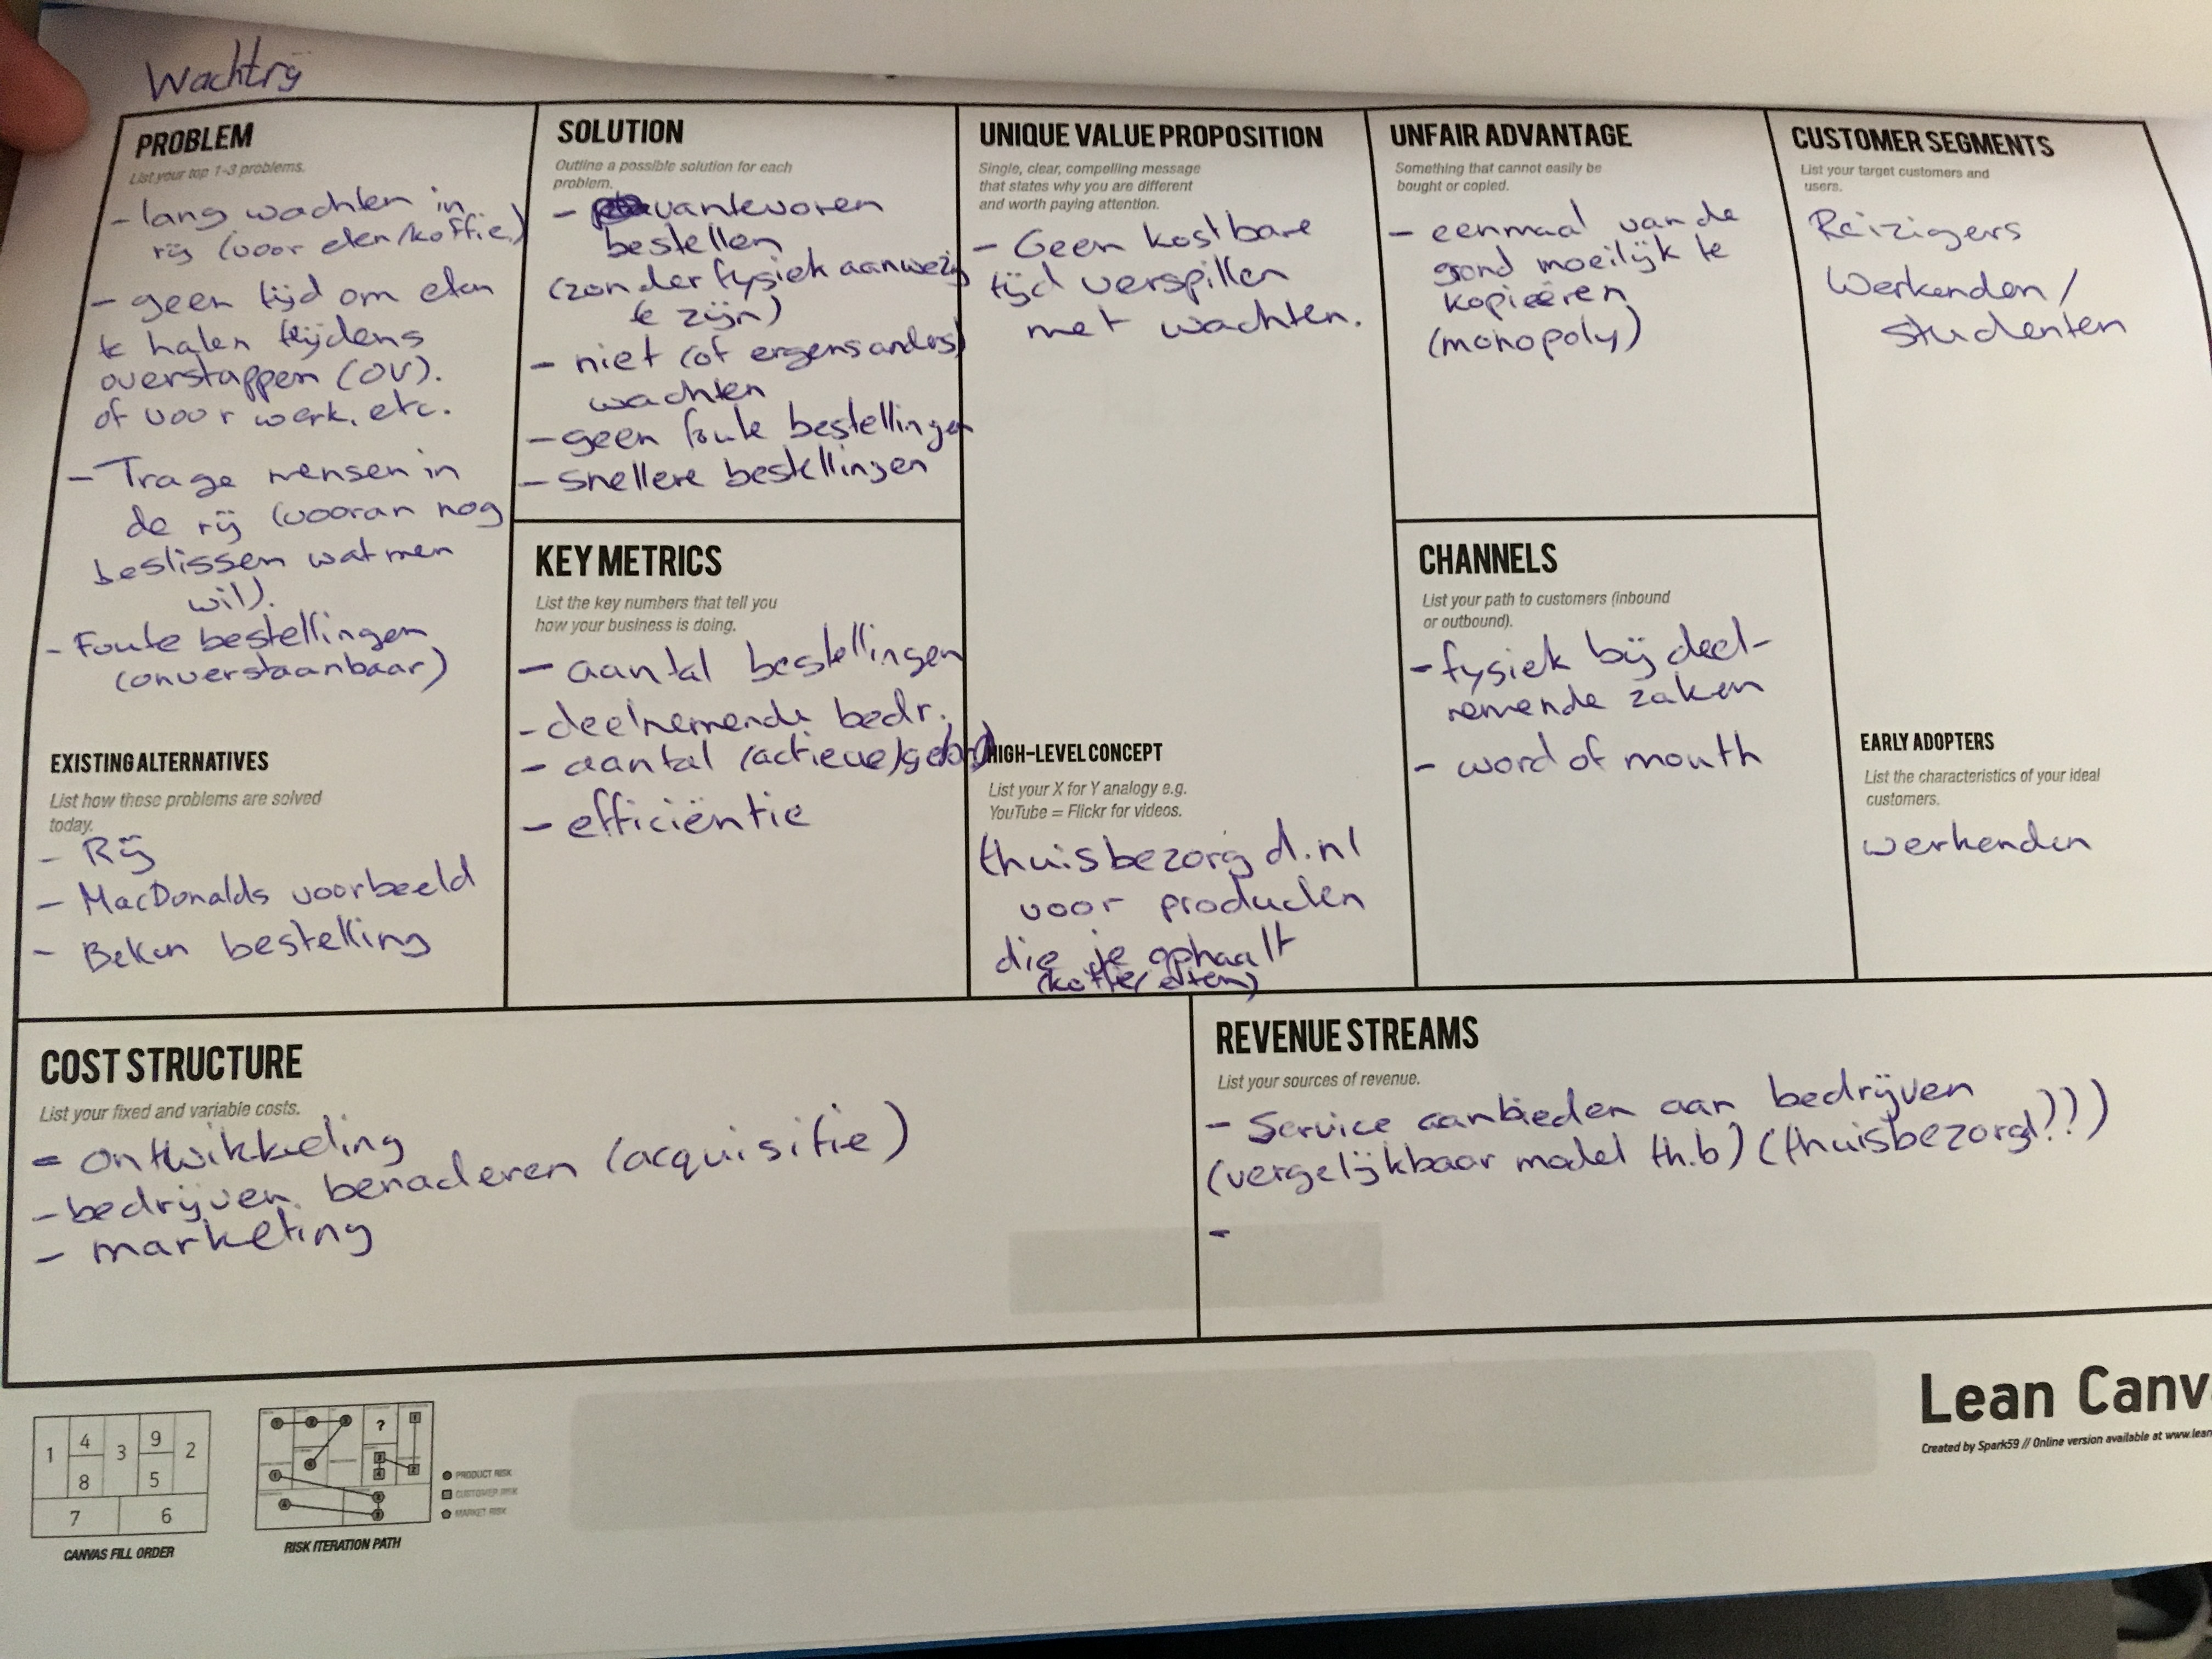 Wachtrij
PROBLEM
List your top 1-3 problems.
- lang wachten in
rij (voor eten/koffie)
- geen tijd om eten
te halen tijdens
overstappen (OV).
of voor werk, etc.
- Trage mensen in
de rij (vooran nog
beslissen wat men
wil).
- Foute bestellingen
(onverstaanbaar)
EXISTING ALTERNATIVES
List how these problems are solved
today.
- Rij
- MacDonalds voorbeeld
- Bekon bestelling
SOLUTION
Outline a possible solution for each
problem.
- van tevoren
bestellen
(zonder fysiek aanwezig
te zijn)
- niet (of ergens anders)
wachten
- geen foute bestellingen
- snellere bestellingen
KEY METRICS
List the key numbers that tell you
how your business is doing.
- aantal bestellingen
- deelnemende bedr.
- aantal (actieve)
- efficiëntie
UNIQUE VALUE PROPOSITION
Single, clear, compelling message
that states why you are different
and worth paying attention.
- Geen kostbare
tijd verspillen
met wachten.
HIGH-LEVEL CONCEPT
List your X for Y analogy e.g.
YouTube = Flickr for videos.
thuisbezorgd.nl
voor producten
die je ophaalt
(koffie, eten)
UNFAIR ADVANTAGE
Something that cannot easily be
bought or copied.
- eenmaal van de
grond moeilijk te
kopiëren
(monopoly)
CHANNELS
List your path to customers (inbound
or outbound).
- fysiek bij deel-
nemende zaken
- word of mouth
CUSTOMER SEGMENTS
List your target customers and
users.
Reizigers
Werkenden/
Studenten
EARLY ADOPTERS
List the characteristics of your ideal
customers.
werkenden
COST STRUCTURE
List your fixed and variable costs.
- ontwikkeling
- bedrijven benaderen (acquisitie)
- marketing
REVENUE STREAMS
List your sources of revenue.
- Service aanbieden aan bedrijven
(vergelijkbaar model th.b) (thuisbezorgd!!)
-
1 4 3 9 2
8 5
7 6
CANVAS FILL ORDER
?
RISK ITERATION PATH
PRODUCT RISK
CUSTOMER RISK
MARKET RISK
Lean Canv
Created by Spark59 // Online version available at www.lean